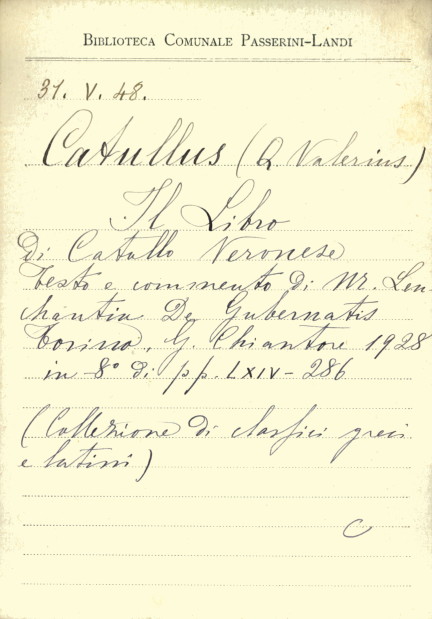 BIBLIOTECA COMUNALE PASSERINI-LANDI
31. V. 48.
Catullus (Q Valerius)
Il Libro
di Catullo Veronese
testo e commento di M. Len-
chantin De Gubernatis
Torino, G. Chiantore 1928
in 8° di pp. LXIV - 286
(Collezione di classici greci
e latini)
C